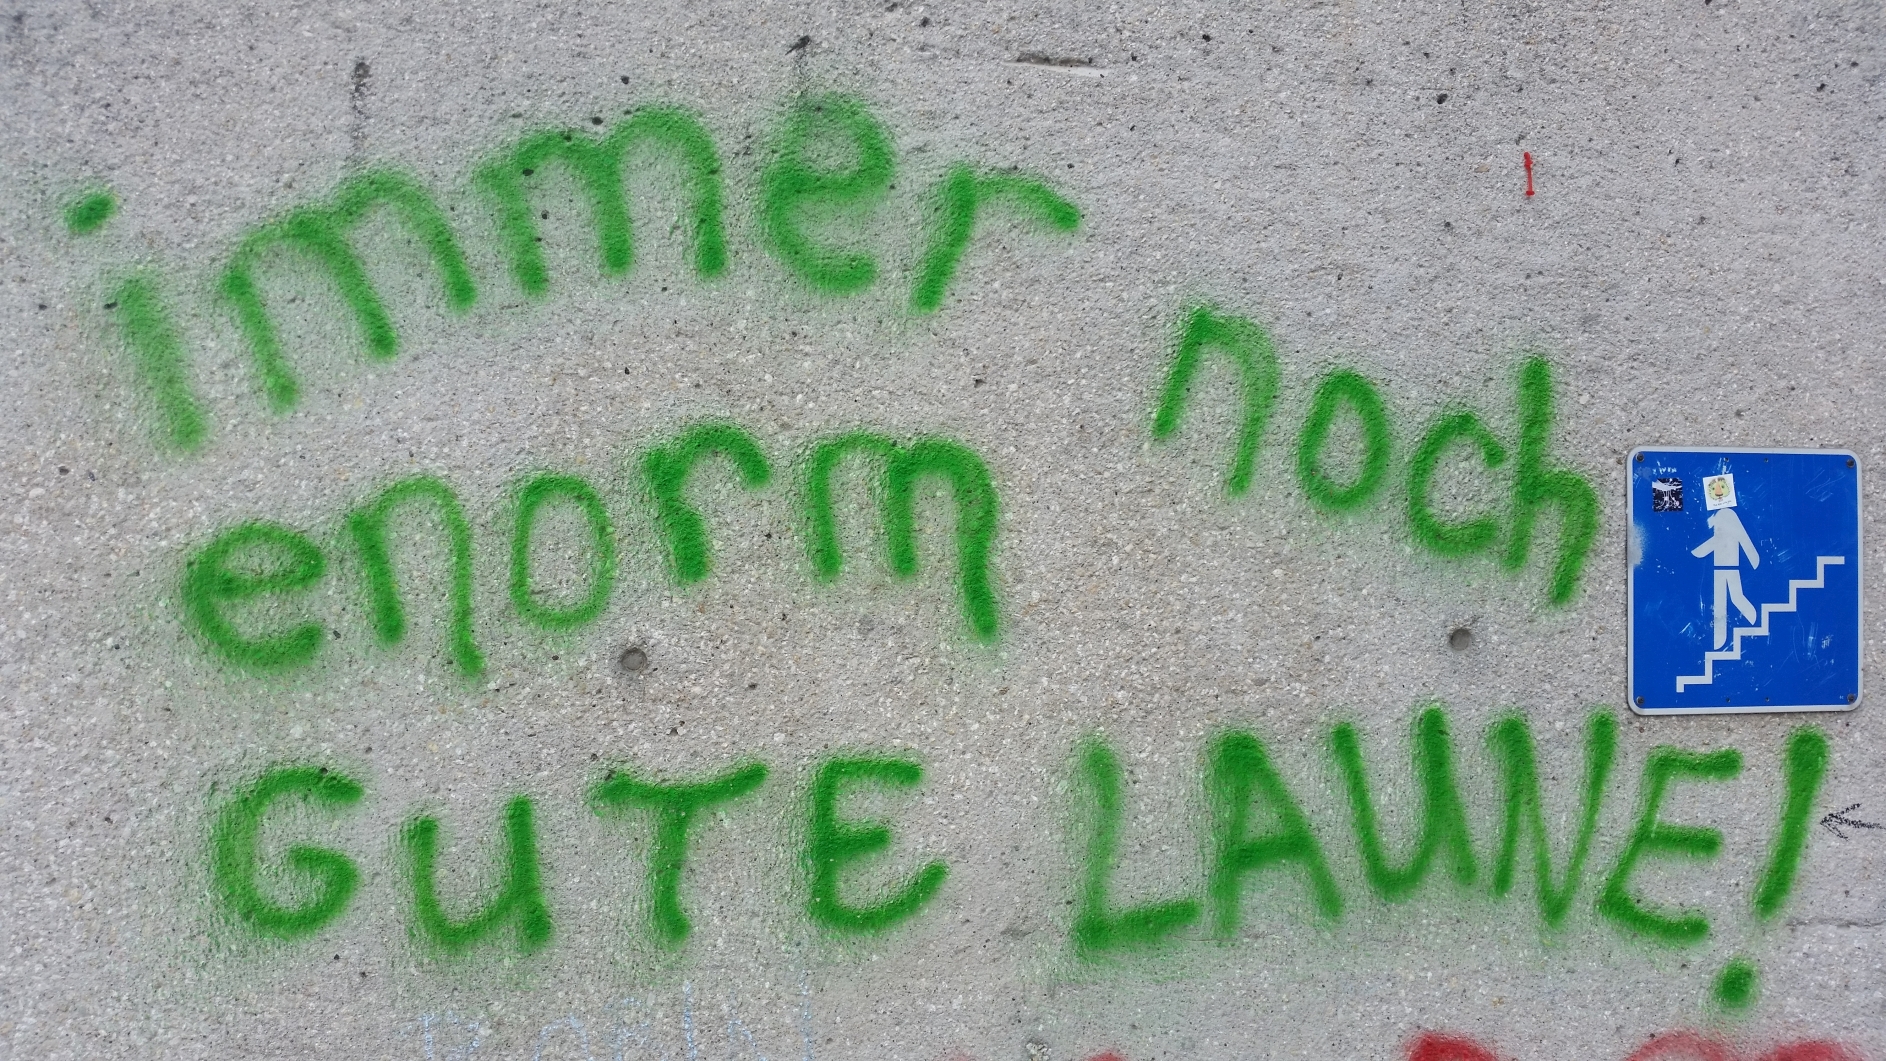 immer noch
enorm
GuTE LAUNE!